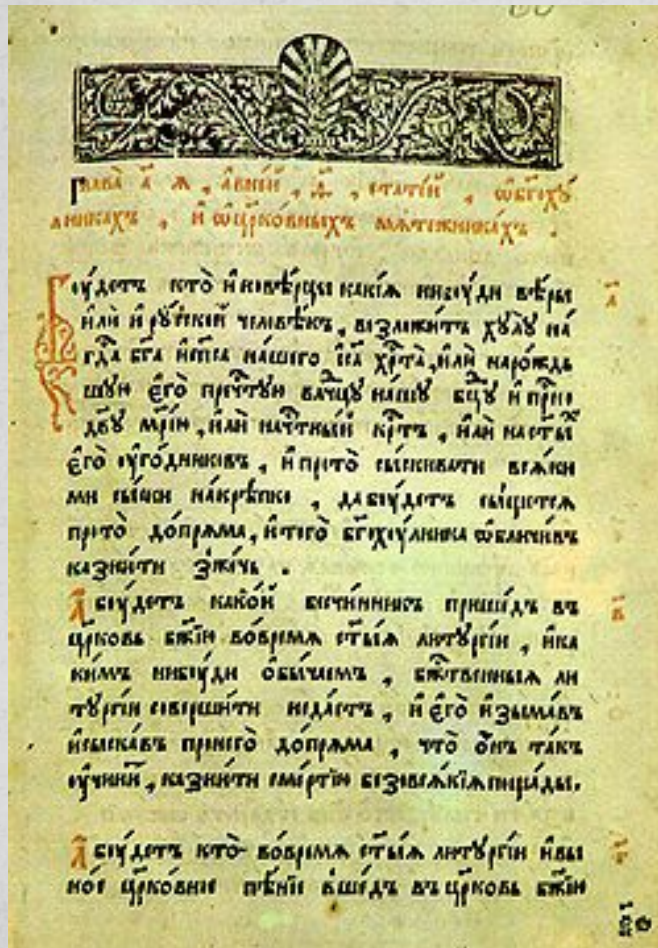 глава҃ а҃ я , а в ней , ѳ҃ , статей , ѡ бг҃оху
лникахъ , и ѡ цр҃ковныхъ мятежникахъ .
Боудетъ кто̀ и҆новѣрцы какїѧ нибоуди вѣ́ры а҃
и҆лѝ и҆ рꙋ́ской человѣ́къ , возложи́тъ хꙋлꙋ̀ на
гдⷭ҇а бг҃а и҆ сп҃са на́шего і҆са хрⷭ҇та̀ , и҆лѝ наро́ждь
шꙋю є҆го̀ пречⷭ҇тꙋю влⷣчцꙋ на́шꙋ бцⷣꙋ и҆ прⷭ҇но
дв҃ꙋ мр҃і́ю , и҆лѝ на чтⷭ҇ны́й крⷭ҇тъ , и҆лѝ на ст҃ы́хъ
є҆го̀ оу҆го́дниковъ , и҆ про то̀ сы́скивати всѧ́ки
ми сы́ски накрѣ́пко , да боу́детъ сы́щетсѧ
про то̀ допрѧ́ма , и҆ того̀ бг҃охоу́лника ѡ҆бличи́въ
казни́ти зже́чь .
А боу́детъ како́й безчи́нникъ прише́дъ въ в҃
цр҃ковь бж҃їю во вре́мѧ ст҃ы́ѧ литꙋргі́и , и҆ ка
ки́мъ нибоу́ди ѻ҆бы́чаемъ , бжⷭ҇твенныѧ ли
тꙋргі́и соверши́ти неда́стъ , и҆ є҆го̀ и҆зыма́въ
и҆ сыска́въ про него̀ допрѧ́ма , что̀ ѻ҆́нъ та́къ
оу҆чини́тъ , казни́ти сме́ртїю безо всѧ́кїѧ поща́ды .
А боу́детъ кто̀ во вре́мѧ ст҃ы́ѧ литꙋргі́и и҆ въ и҆ г҃
но́е цр҃ко́вное пѣ́нїе вше́дъ въ цр҃ковь бж҃їю